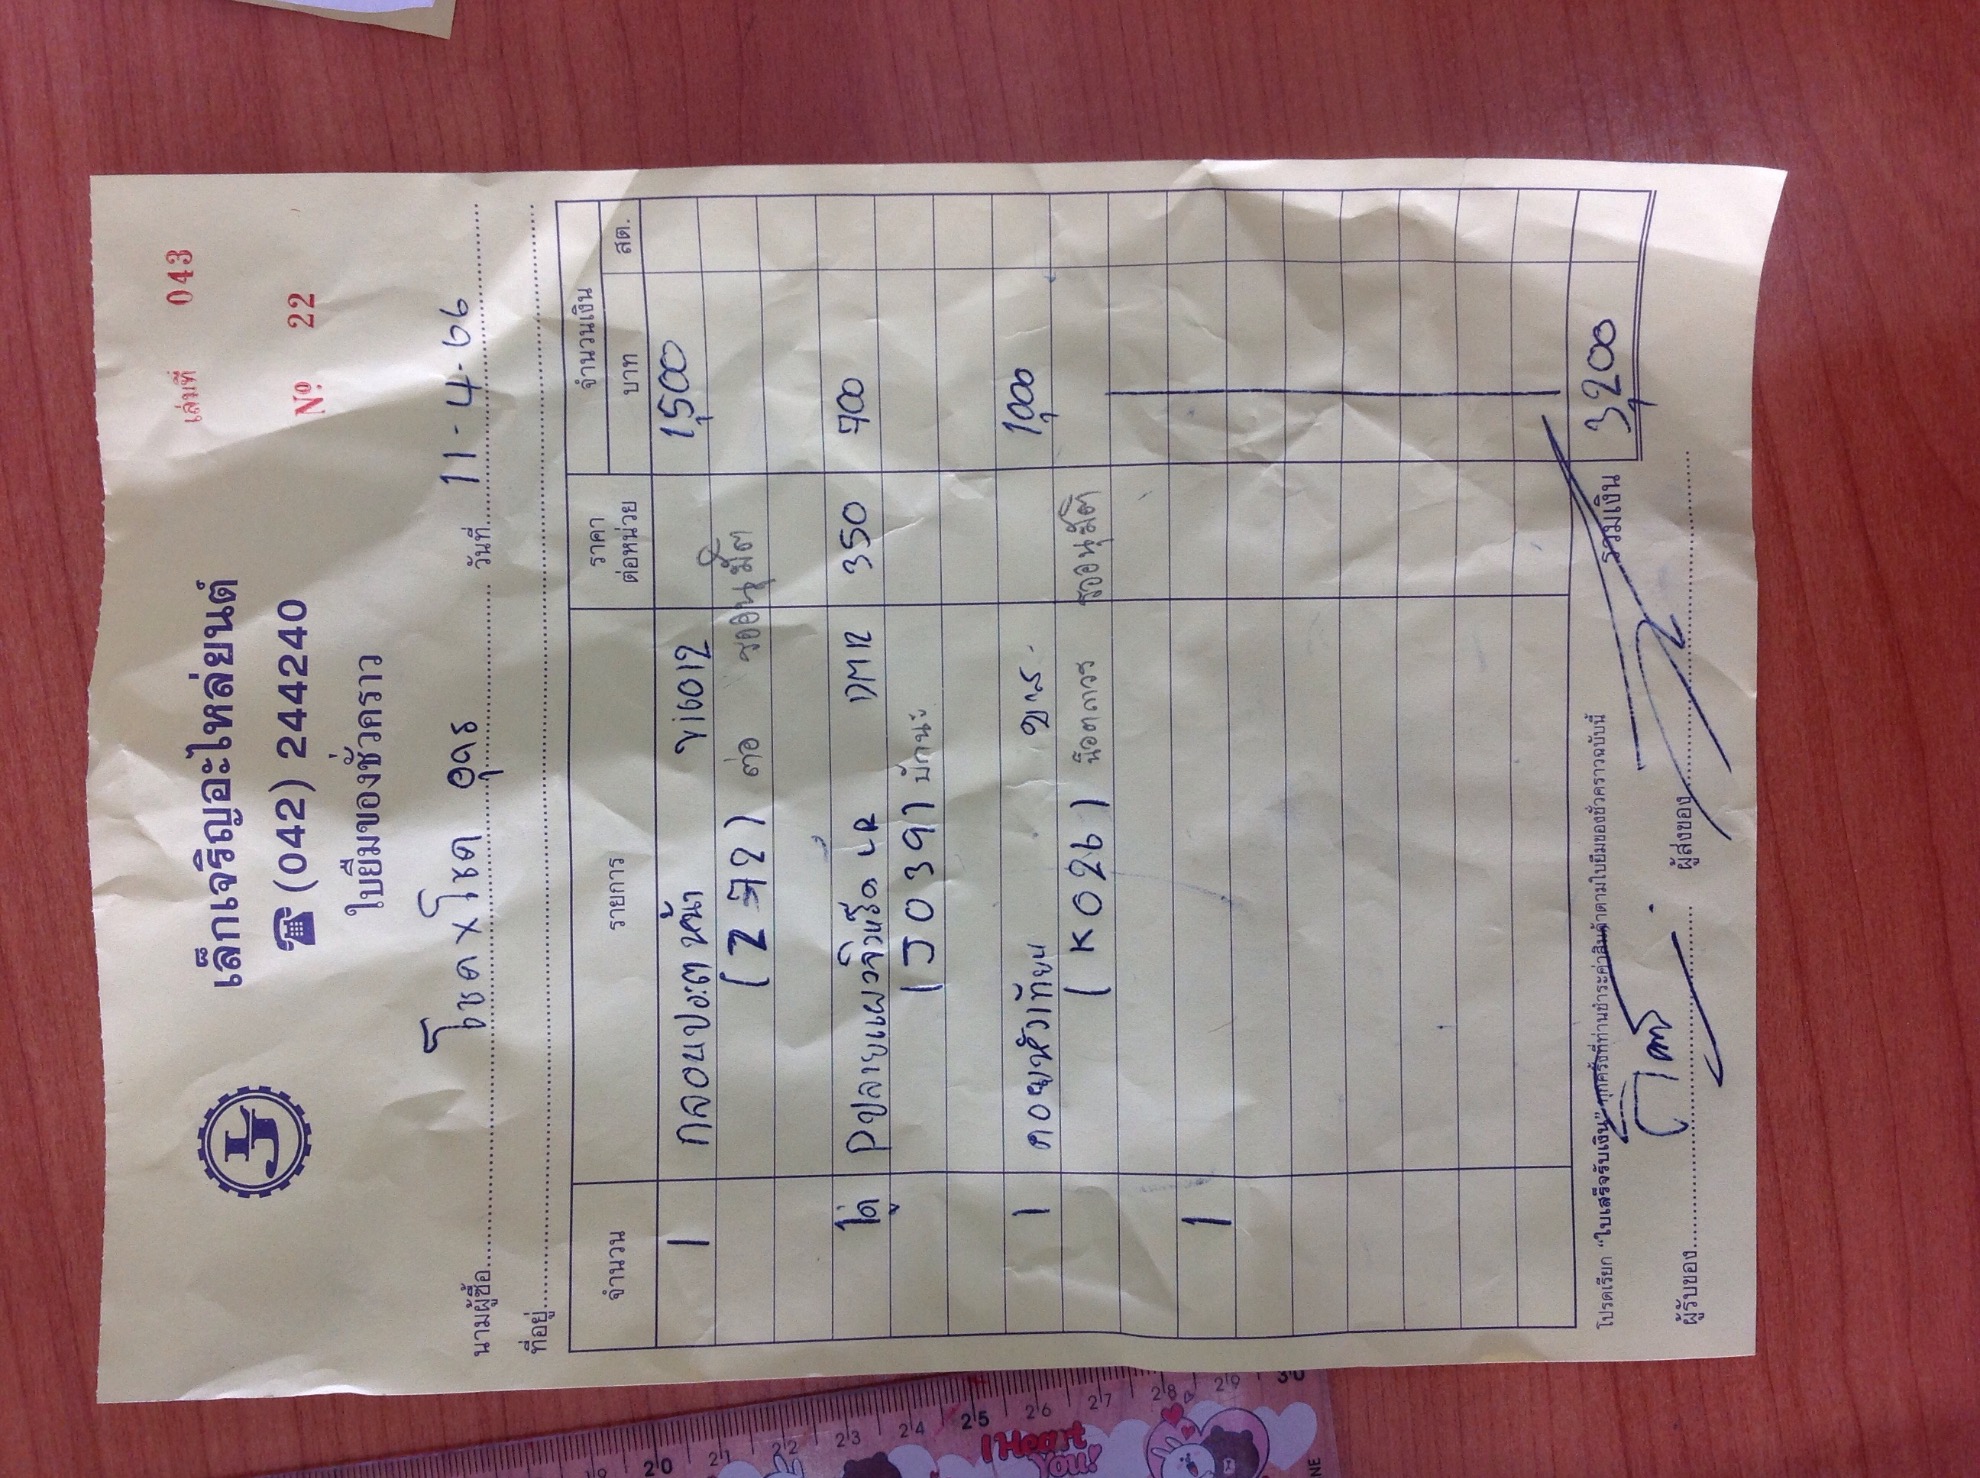 เล่มที่ 043
เล็กเจริญอะไหล่ยนต์
Nº 22
☎ (042) 244240
ใบยืมของชั่วคราว
นามผู้ซื้อ โชค x โชค อุดร วันที่ 11-4-66
ที่อยู่
จำนวน รายการ ราคาต่อหน่วย จำนวนเงิน
บาท สต.
1 กลอนประตูหน้า VIGO12 1,500
(Z 772) ต่อ รออนุมัติ
คู่ Pปลายแผงจิ้งหรีด LR DMR 350 700
(J0391) บักนะ
1 คอยหัวเทียน 1,000
(K026) น๊อตถาวร รออนุมัติ
1
รวมเงิน 3,200
โปรดเรียก "ใบเสร็จรับเงิน" ทุกครั้งที่ท่านชำระค่าสินค้าตามใบยืมของชั่วคราวฉบับนี้
ผู้รับของ ผู้ส่งของ
20 21 22 23 24 25 26 27 28 29 30
I Heart
You!